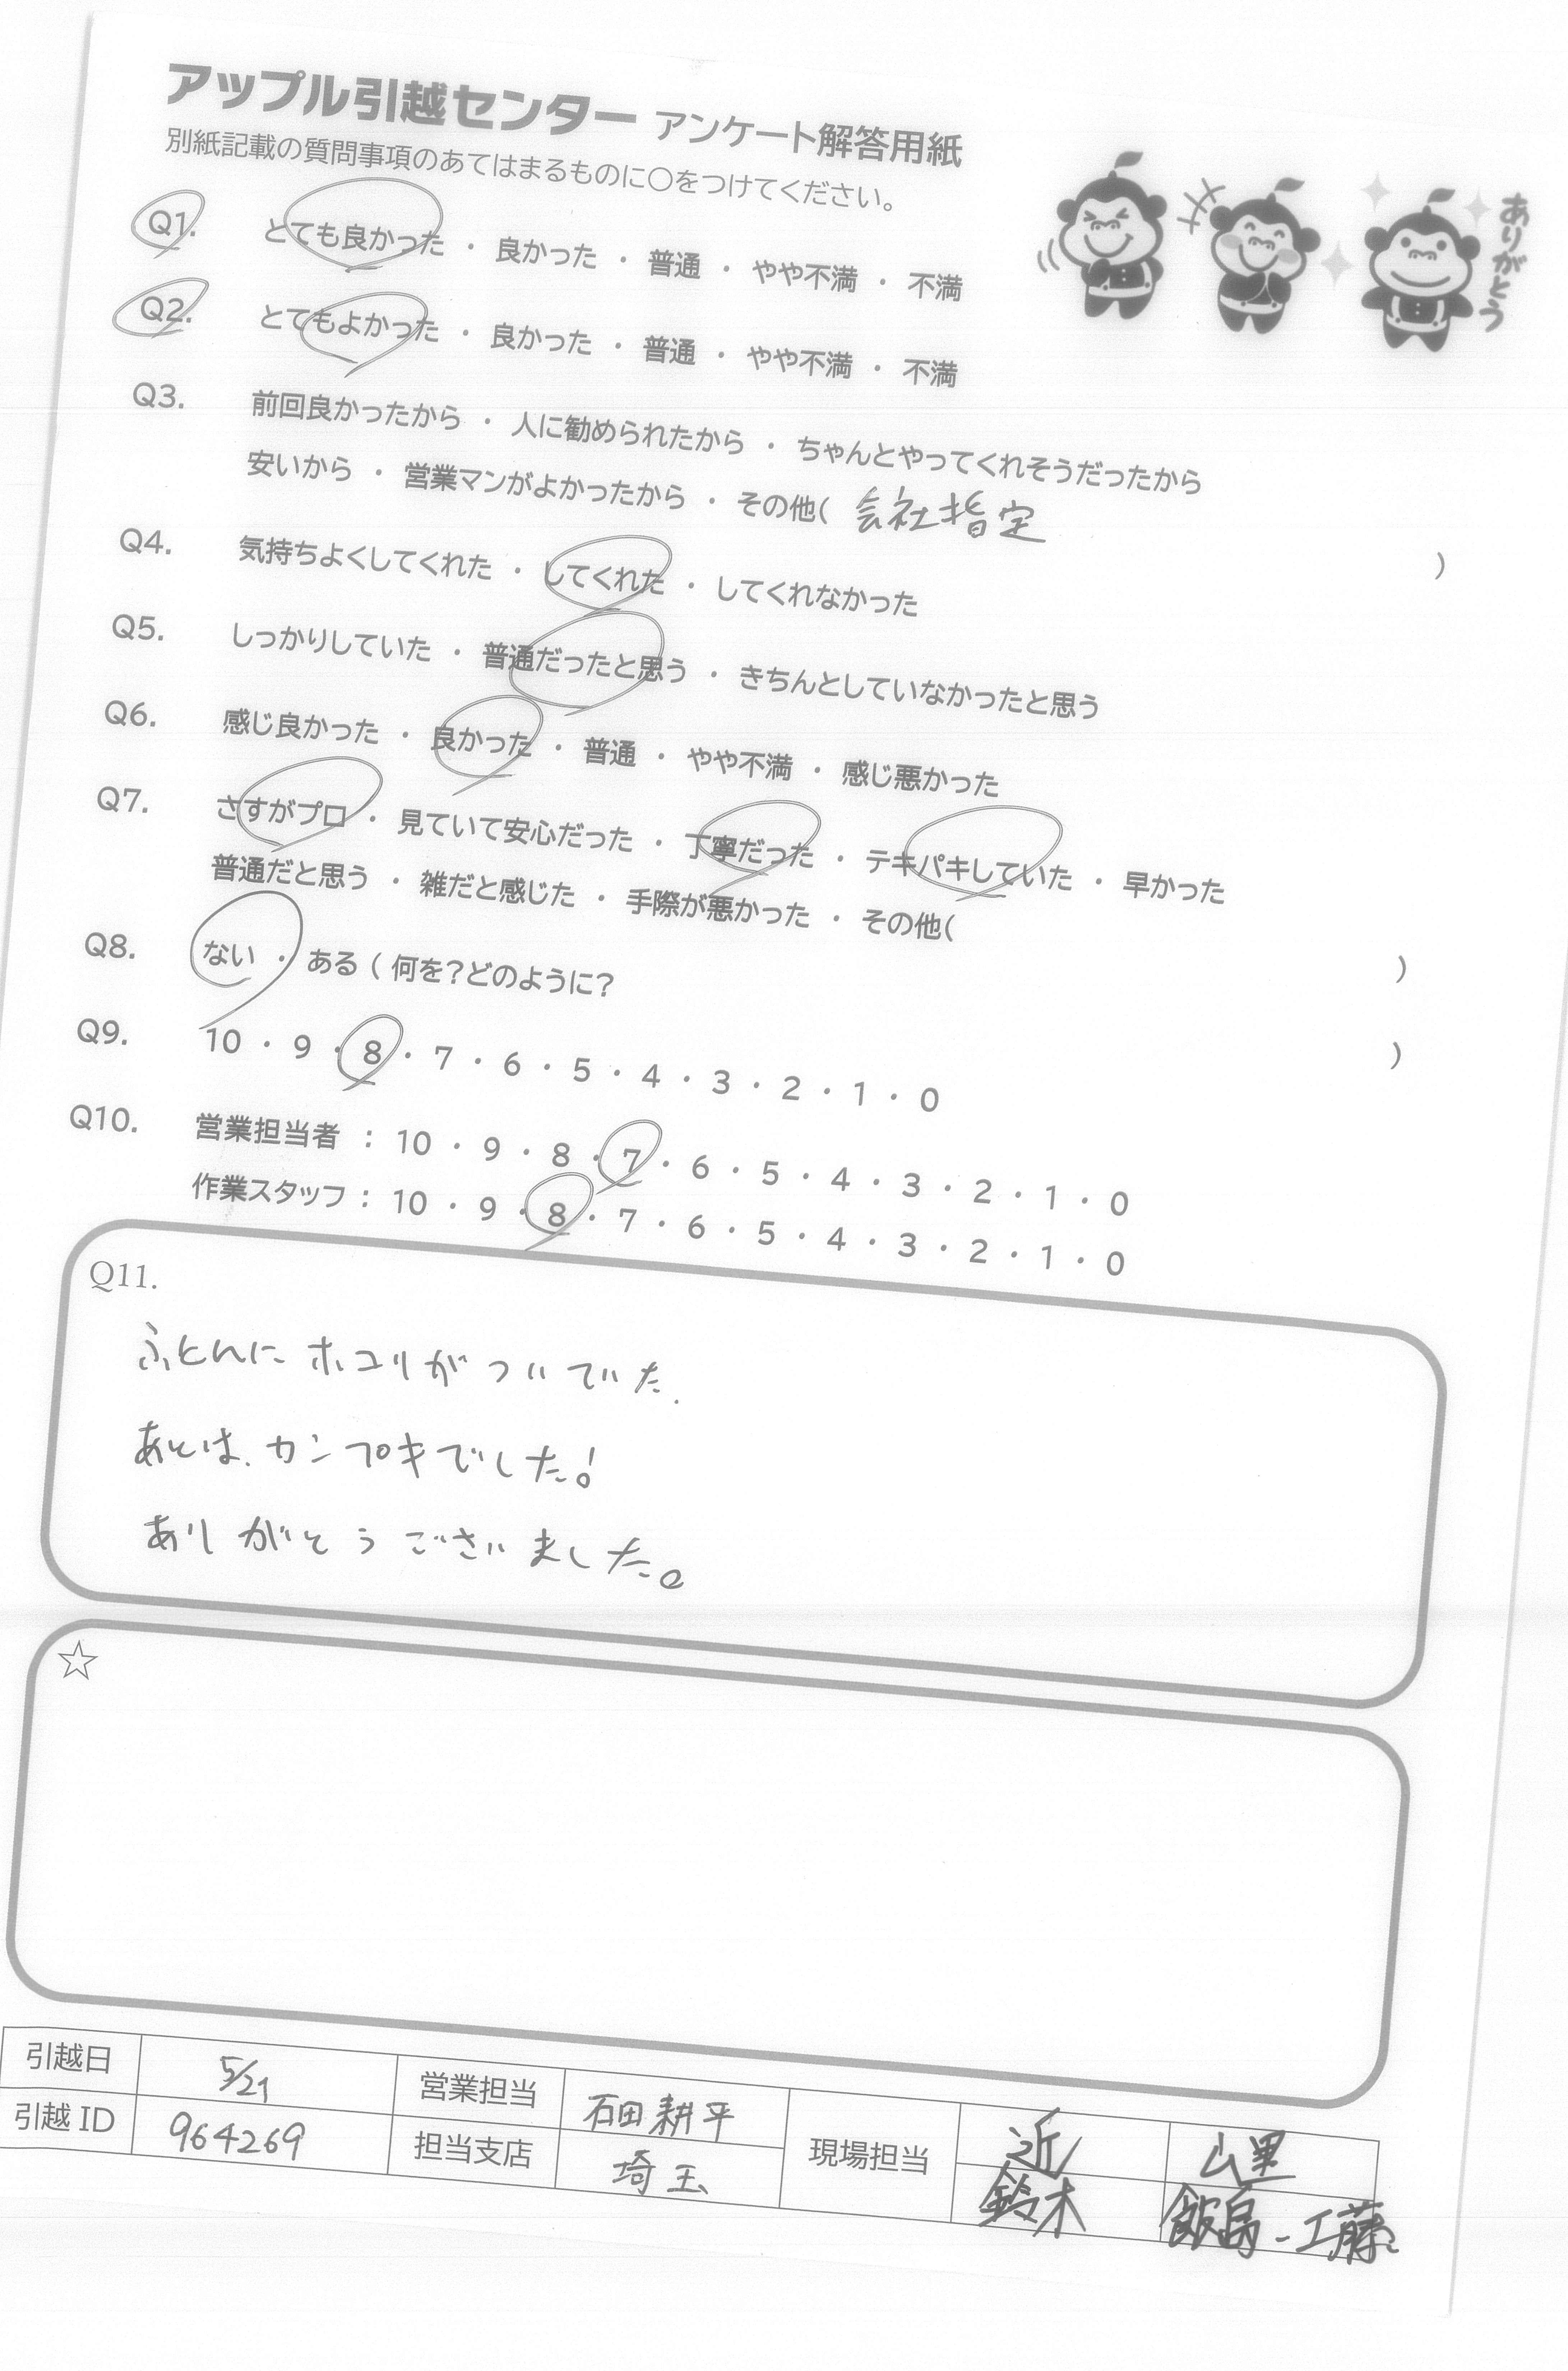 アップル引越センター アンケート解答用紙
別紙記載の質問事項のあてはまるものに〇をつけてください。
ありがとう
Q1. とても良かった ・ 良かった ・ 普通 ・ やや不満 ・ 不満
Q2. とてもよかった ・ 良かった ・ 普通 ・ やや不満 ・ 不満
Q3. 前回良かったから ・ 人に勧められたから ・ ちゃんとやってくれそうだったから
安いから ・ 営業マンがよかったから ・ その他( 会社指定 )
Q4. 気持ちよくしてくれた ・ してくれた ・ してくれなかった
Q5. しっかりしていた ・ 普通だったと思う ・ きちんとしていなかったと思う
Q6. 感じ良かった ・ 良かった ・ 普通 ・ やや不満 ・ 感じ悪かった
Q7. さすがプロ ・ 見ていて安心だった ・ 丁寧だった ・ テキパキしていた ・ 早かった
普通だと思う ・ 雑だと感じた ・ 手際が悪かった ・ その他( )
Q8. ない ・ ある ( 何を?どのように? )
Q9. 10 ・ 9 ・ 8 ・ 7 ・ 6 ・ 5 ・ 4 ・ 3 ・ 2 ・ 1 ・ 0
Q10. 営業担当者 : 10 ・ 9 ・ 8 ・ 7 ・ 6 ・ 5 ・ 4 ・ 3 ・ 2 ・ 1 ・ 0
作業スタッフ : 10 ・ 9 ・ 8 ・ 7 ・ 6 ・ 5 ・ 4 ・ 3 ・ 2 ・ 1 ・ 0
Q11.
ふとんに ホコリが ついていた.
あとは、カンプキでした!
ありがとうございました。
☆
引越日 5/21 営業担当 石田耕平 現場担当 近 山里
引越 ID 964269 担当支店 埼玉 鈴木 飯島-工藤